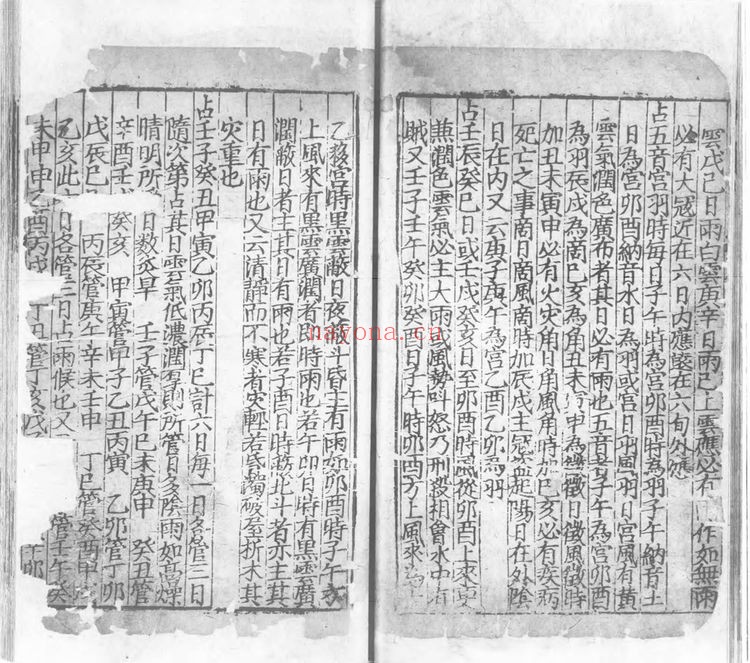 雲戊己日雨白雲庚辛日雨已上雲應必有 作如無雨
必有大寇近在六日内應驗在六旬外應
占五音宫羽時每日子午時為宫卯酉時為羽子午納音土
日為宫卯酉納音水日為羽或宫日羽風羽日宫風有黄
雲氣潤色廣布者其日必有雨也五音是子午為宫卯酉
為羽辰戌為商巳亥為角丑未寅申為徵徵日徵風徵時
加丑未寅申必有火灾角日角風角時加巳亥必有疾病
死亡之事商日商風商時加辰戌主寇盗起陽日在外陰
日在内又云庚子庚午為宫乙酉乙卯為羽
占壬辰癸巳日或壬戌癸亥日至卯酉時風從卯酉上來更
兼潤色雲氣必主大雨或風勢叫怒乃刑殺相會水中有
賊又壬子壬午癸卯癸酉日子午時卯酉方上風來
乙發宫時黑雲蔽日夜蔽斗昏主有雨如卯酉時子午
上風來有黑雲廣潤者即時雨也若午卯日時有黑雲廣
潤蔽日者主其日有雨也若子酉日時蔽北斗者亦主其
日有雨也又云清靜而不寒者灾輕若昏濁破屋折木其
灾重也
占壬子癸丑甲寅乙卯丙辰丁巳計六日每一日各管三日
隨次第占其日雲氣低濃潤厚則所管日多陰雨如高燥
晴明所 日數炎旱 壬子管戊午巳未庚申 癸丑管
辛酉壬戌癸亥 甲寅管 子乙丑丙寅 乙卯管丁卯
戊辰巳 丙辰管庚午辛未壬申 丁巳管癸酉甲
乙亥此 日各管三日占雨候也又 管壬午癸
未申申乙酉丙戌 丁丑管丁亥戊 卯
nayona.cn